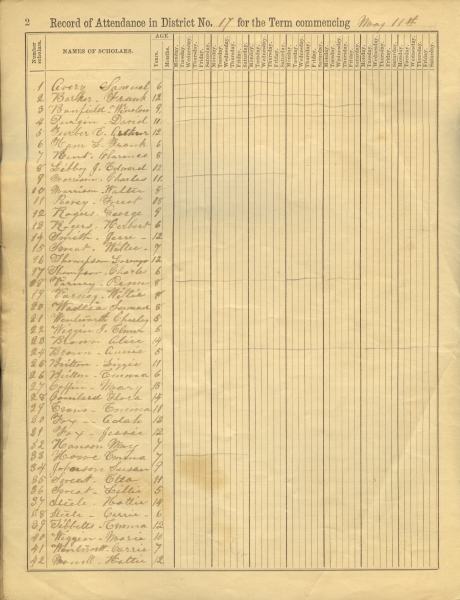 2 Record of Attendance in District No. 17 for the Term commencing May 11th
Number scholars. NAMES OF SCHOLARS. AGE Months. Monday. Tuesday. Wednesday. Thursday. Friday. Saturday. Monday. Tuesday. Wednesday. Thursday. Friday. Saturday. Monday. Tuesday. Wednesday. Thursday. Friday. Saturday. Monday. Tuesday. Wednesday. Thursday. Friday. Saturday. Monday. Tuesday. Wednesday. Thursday. Friday. Saturday.
1 Avery Samuel 6
2 Barker - Frank 12
3 Banfield - Winslow 9
4 Durgin - David 11
5 Furber E. Arthur 12
6 Ham L. Frank 6
7 Hunt - Clarence 8
8 Libbey J. Edward 11
9 Morrison - Charles 11
10 Morrison - Walter 8
11 Peavey - Frest 10
12 Rogers - George 9
13 Rogers - Herbert 6
14 Smith - Jesse - 12
15 Sweat - Willie - 7
16 Thompson Lorenzo 12
17 Thompson - Charles 6
18 Varney - 8
19 Varney - Willie 8
20 8
21 Wentworth Charley 5
22 Wiggin J. Elmer 6
23 Brown Alice 14
24 Brown - Annie 5
25 Britton - Lizzie 11
26 Britton - Emma 6
27 Coffin - Mary 13
28 Flora 14
29 Evans - Emma 11
30 Fox - Addie 12
31 Fox - Jennie 12
32 Hanson May 7
33 Howe Emma 7
34 Johnson Susan 9
35 Sweat - Etta 11
36 Sweat - Lillie 5
37 Steele - Hattie 14
38 Steele - Carrie - 6
39 Tibbetts - Emma 12
40 Wiggin - Maria 10
41 Wentworth - Carrie 7
42 - Hattie 12